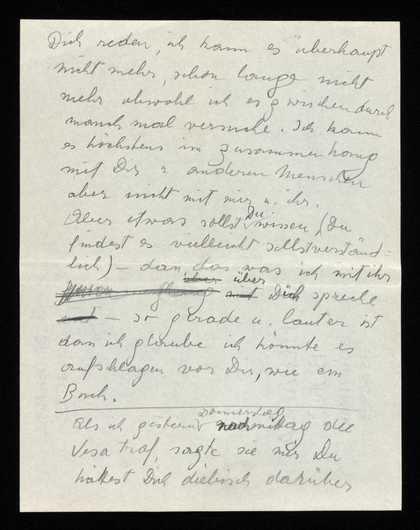 Dich reden, ich kann es überhaupt
nicht mehr, schon lange nicht
mehr obwohl ich es zwischendurch
manch mal versuche. Ich kann
es höchstens im zusammenhang
mit Dir u. anderen Menschen
aber nicht mit mir u. ihr.
Aber etwas sollst Du wissen, (Du
findest es vielleicht selbstverständ-
lich) – dan das was ich mit ihr
über Dich spreche
– so gerade u. lauter ist
dan ich glaube ich könnte es
aufschlagen vor Dir, wie ein
Buch.
Als ich gestern Donnerstag nachmittag die
Vesa traf, sagte sie mir Du
hättest Dich diebisch darüber